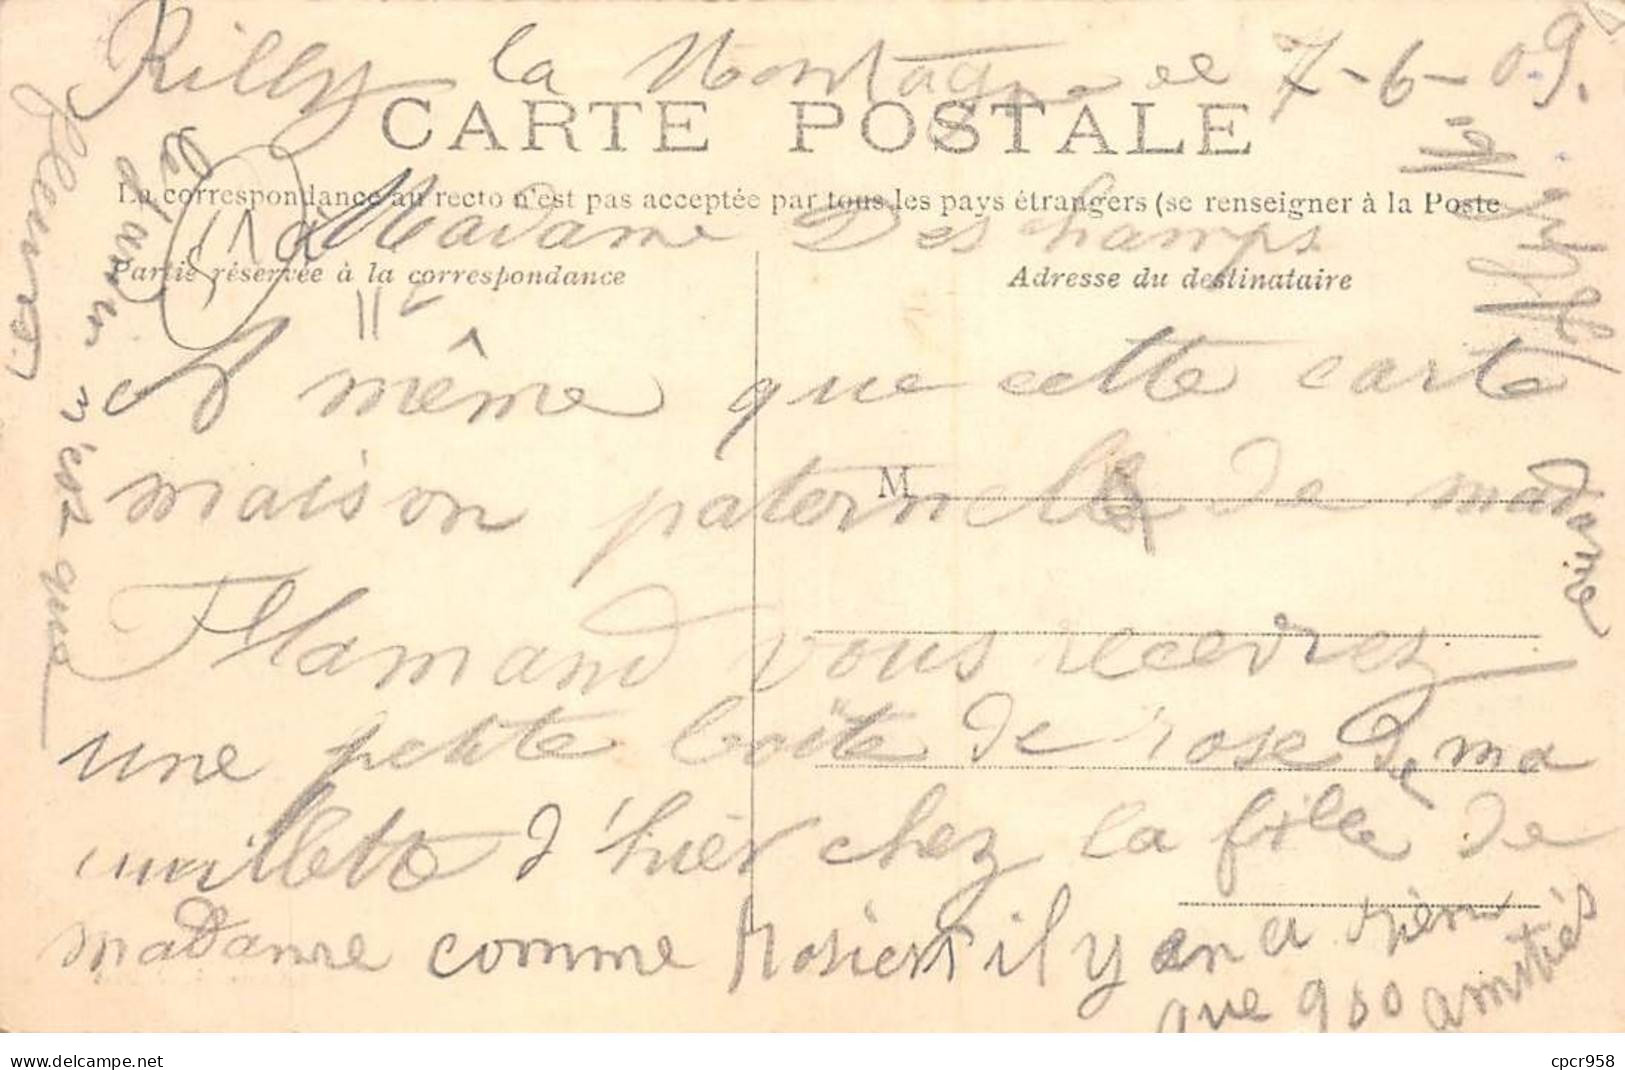 Rilly la Montagne le 7-6-09.
CARTE POSTALE
La correspondance au recto n'est pas acceptée par tous les pays étrangers (se renseigner à la Poste
à Madame Deschamps
Partie réservée à la correspondance
Adresse du destinataire
même que cette carte
M
maison paternelle de madame
Flamand vous recevrez
une petite boite de rose de ma
d'hièr chez la fille de
madame comme Rosiers il y en a rièn
que 900 amitiés
fleures
n'est que
cpcr958